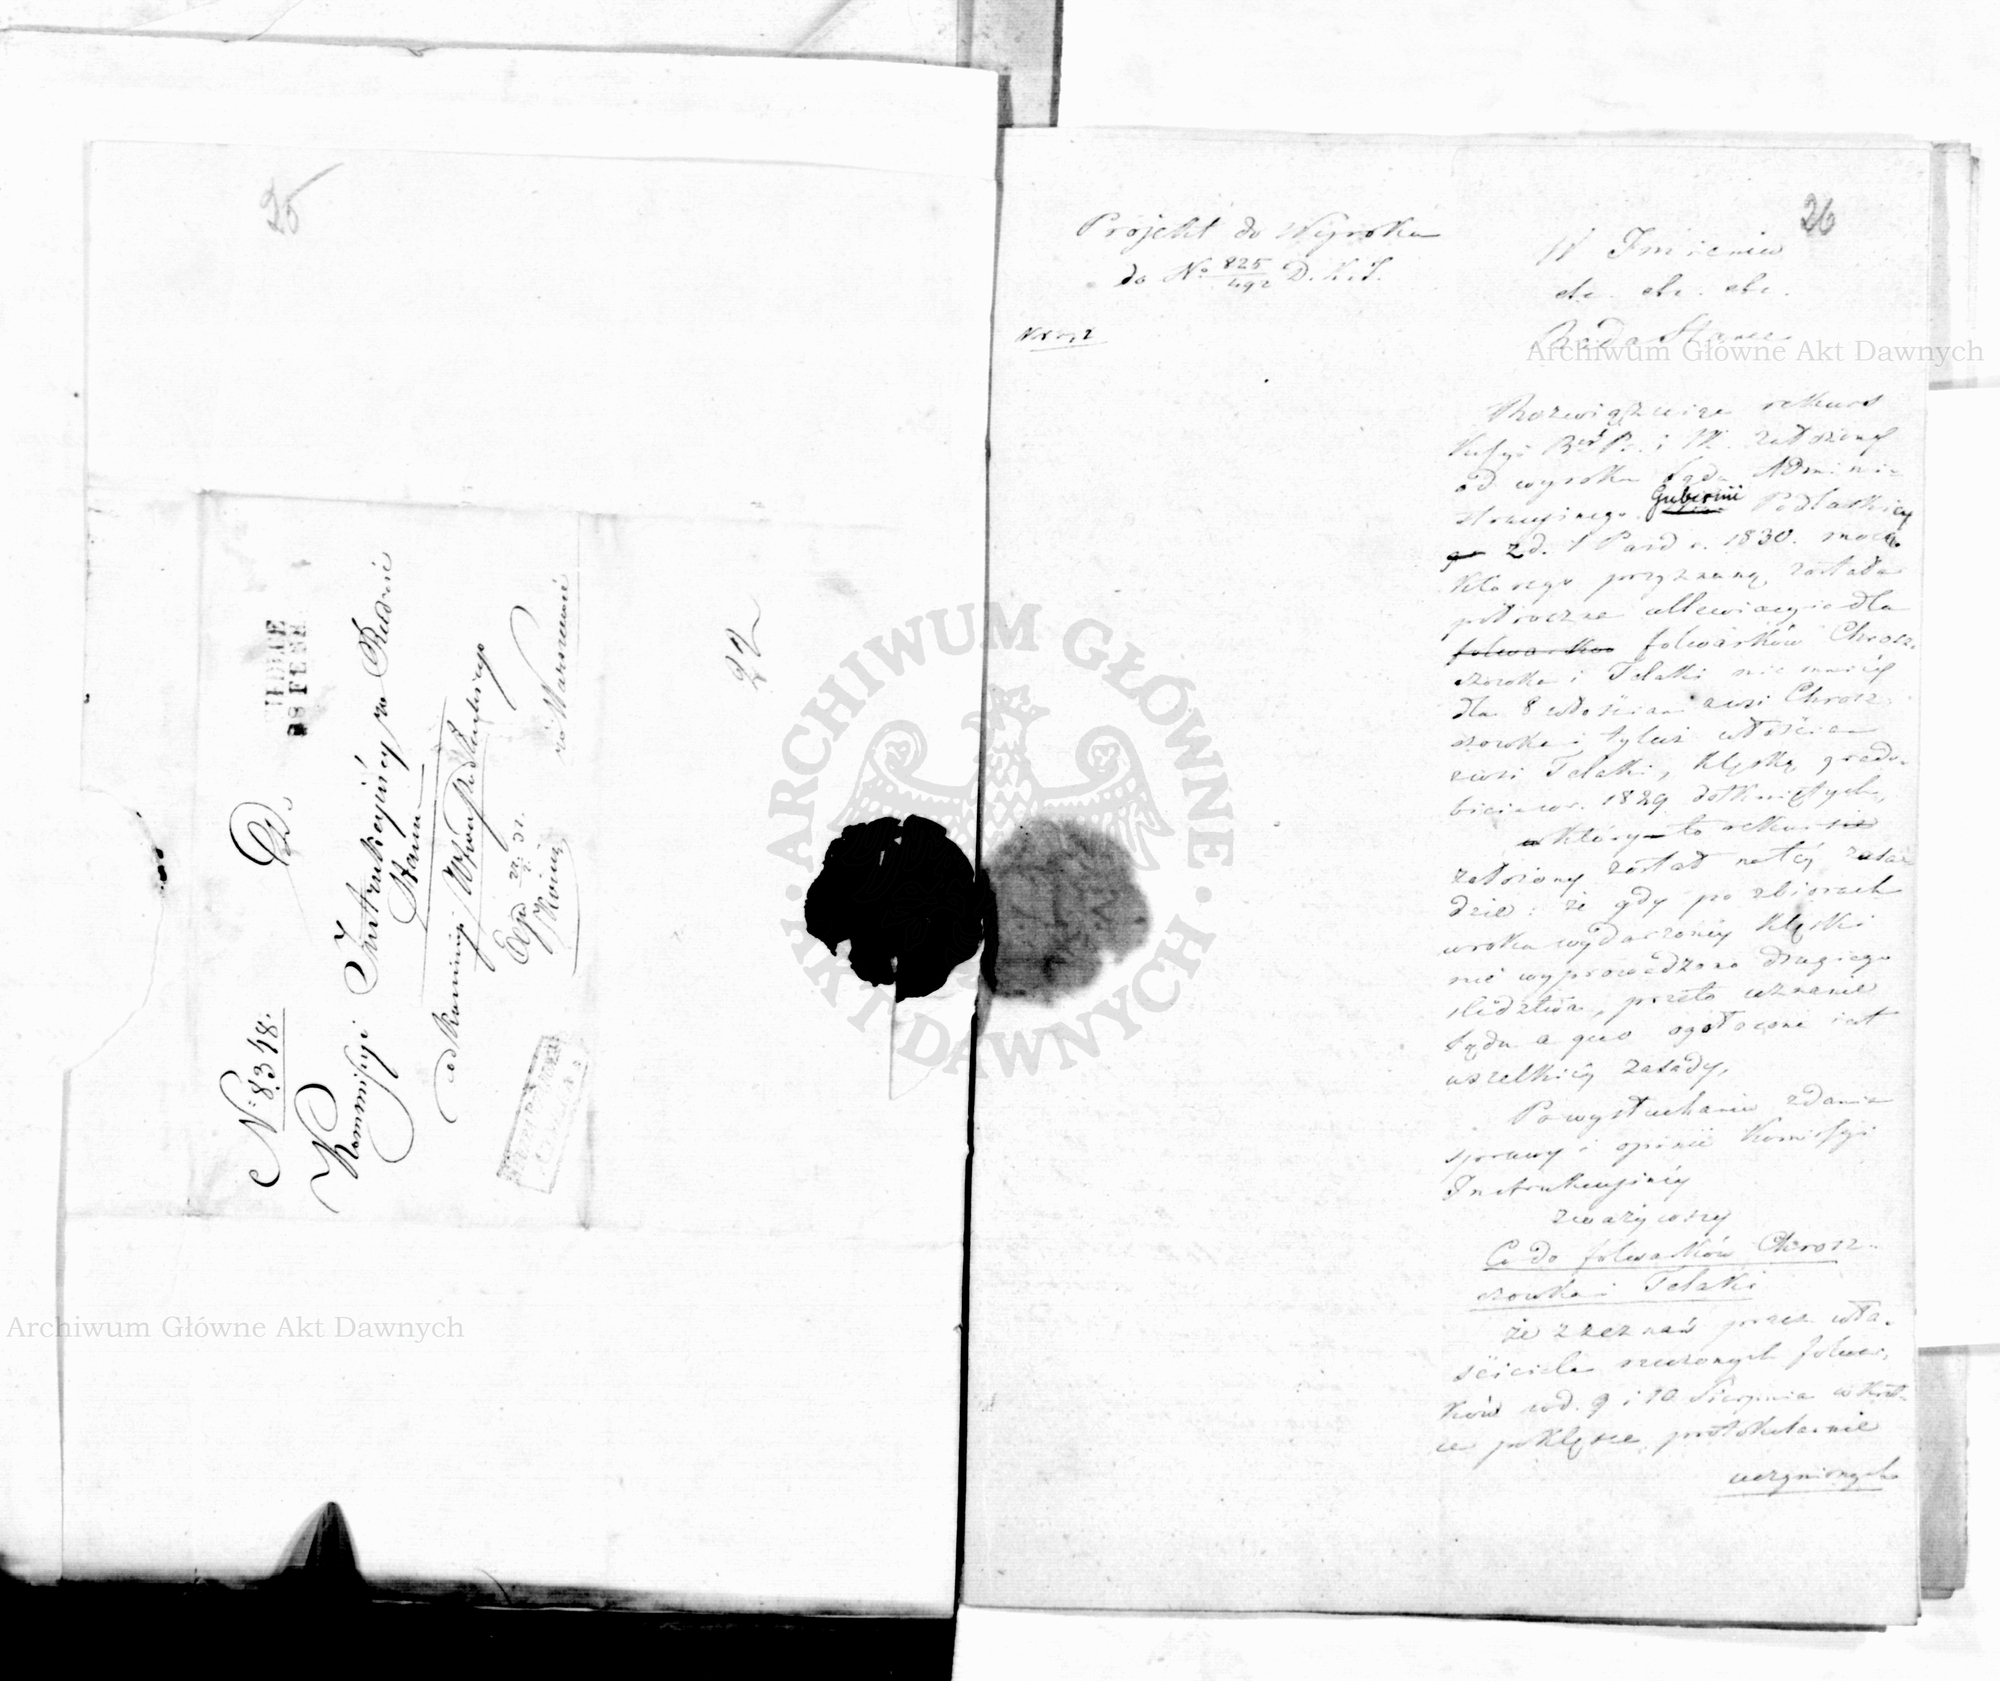 25
No 8348.
Do
Kommissyi Instrukcyinéy w Radzie
Stanu
od Kommissyi Wdztwa Podlaskiego
w Warszawie
22
Archiwum Główne Akt Dawnych
26
Projekt do Wyroku
do No 825/492 D. K. I.
W Imieniu
etc. etc. etc.
Rada Stanu
Archiwum Główne Akt Dawnych
Rozwiązuiąc rekurs
P. i S. założony
od wyroku Sądu Admini-
stracyinego Gubernii Podlaskiey
z d. 1 Paźd. r. 1830. mocą
którego przyznaną została
półroczna allewiacyia dla
folwarków folwarków Chrosz-
czowka i Telaki nie mniéy
dla 8 włościan z wsi Chrosz-
czowka i tyluż włościan
z wsi Telaki, klęską grado-
bicia w r. 1829 dotkniętych,
który to rekurs
założony został na téy zasa-
dzie: że gdy po zbiorach
w roku wydarzonéy klęski
nie wyprowadzono drugiego
śledztwa, przeto uznanie
Sądu a quo ogołocone iest
wszelkiéy zasady,
Po wysłuchaniu zdania
sprawy i opinii Komissyi
Instrukcyinéy
zważywszy
Co do folwarków Chrosz-
czowka i Telaki
że zeznań przez wła-
ściciela rzeczonych folwar-
ków w d. 9 i 10 Sierpnia w krót-
ce po klęsce protokularnie
uczynionych
ARCHIWUM GŁÓWNE AKT DAWNYCH